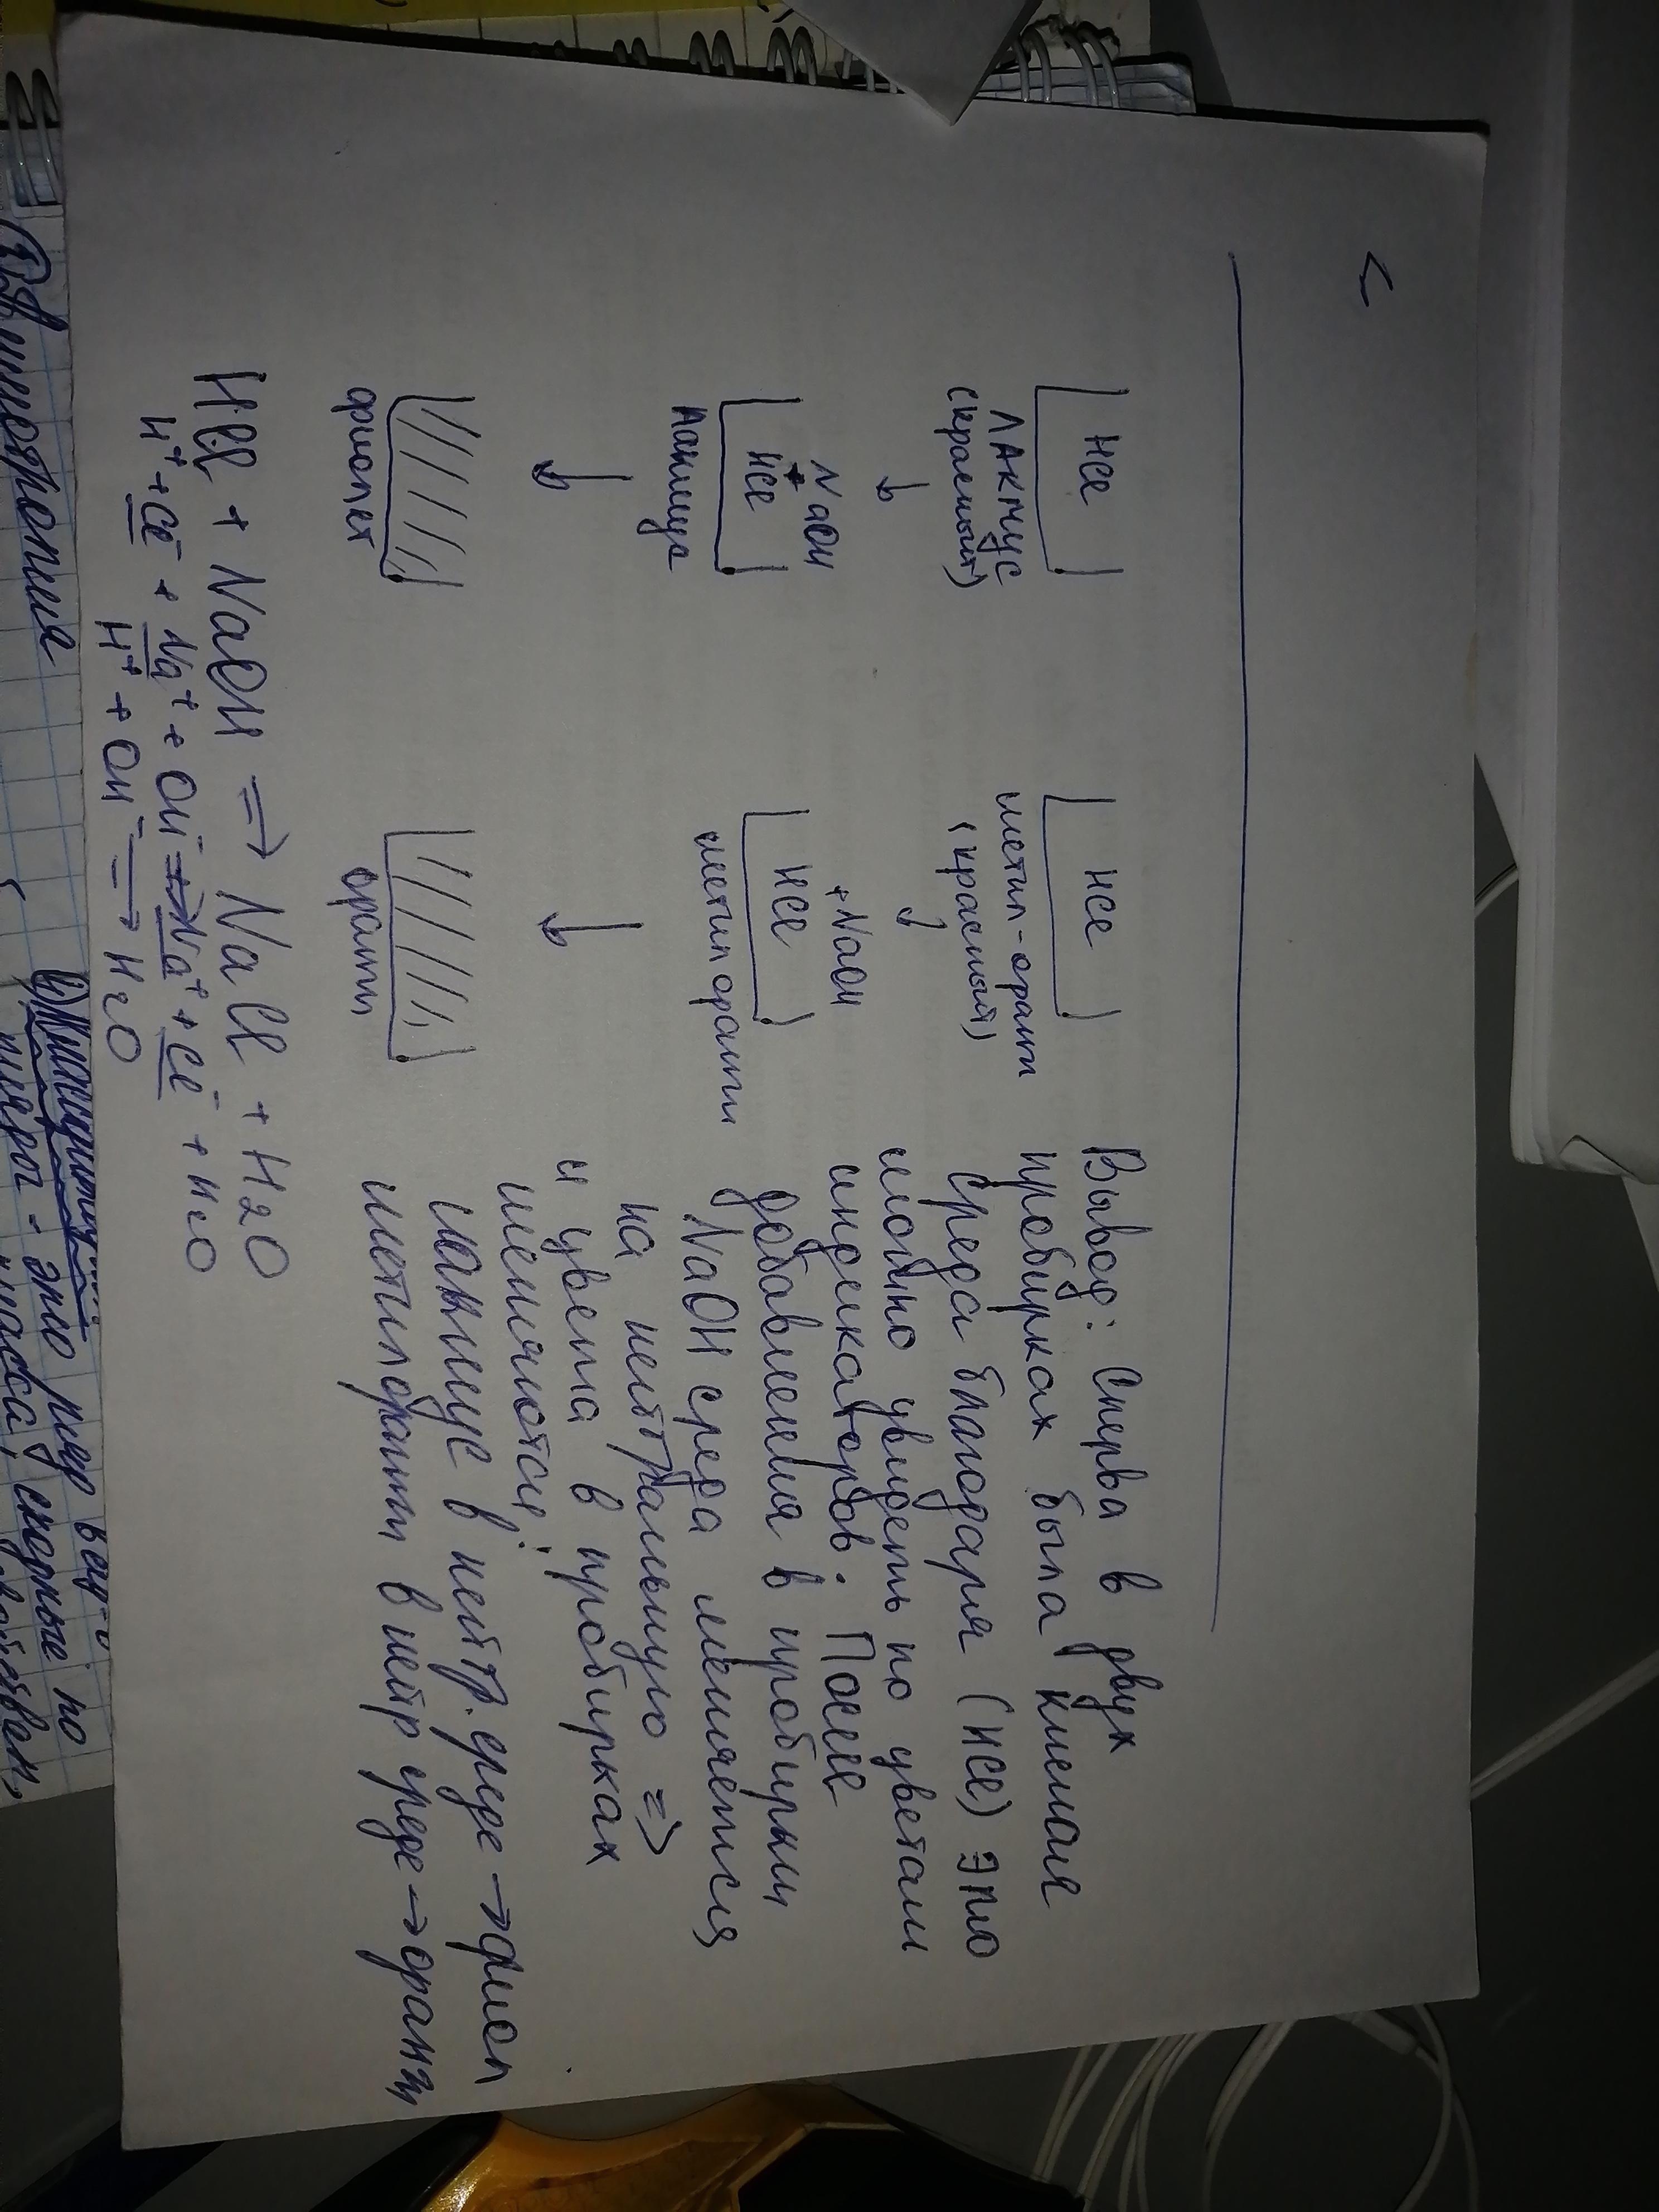 <
HCl
HCl
Лакмус
(красный)
метил-оранж
(красный)
↓
↓
NaOH
+
HCl
лакмус
+NaOH
HCl
метилоранж
↓
↓
фиолет
оранж
HCl + NaOH => NaCl + H2O
H⁺ + Cl⁻ + Na⁺ + OH⁻ → Na⁺ + Cl⁻ + H2O
H⁺ + OH⁻ → H2O
Вывод: Сперва в двух
пробирках была кислая
среда благодаря (HCl) это
можно увидеть по цветам
индикаторов. После
добавления в пробирки
NaOH среда меняется
на нейтральную =>
и цвета в пробирках
меняются:
лакмус в нейтр. среде → фиол
метилоранж в нейтр среде → оранж
Аллотропия
- это ряд вещ-в